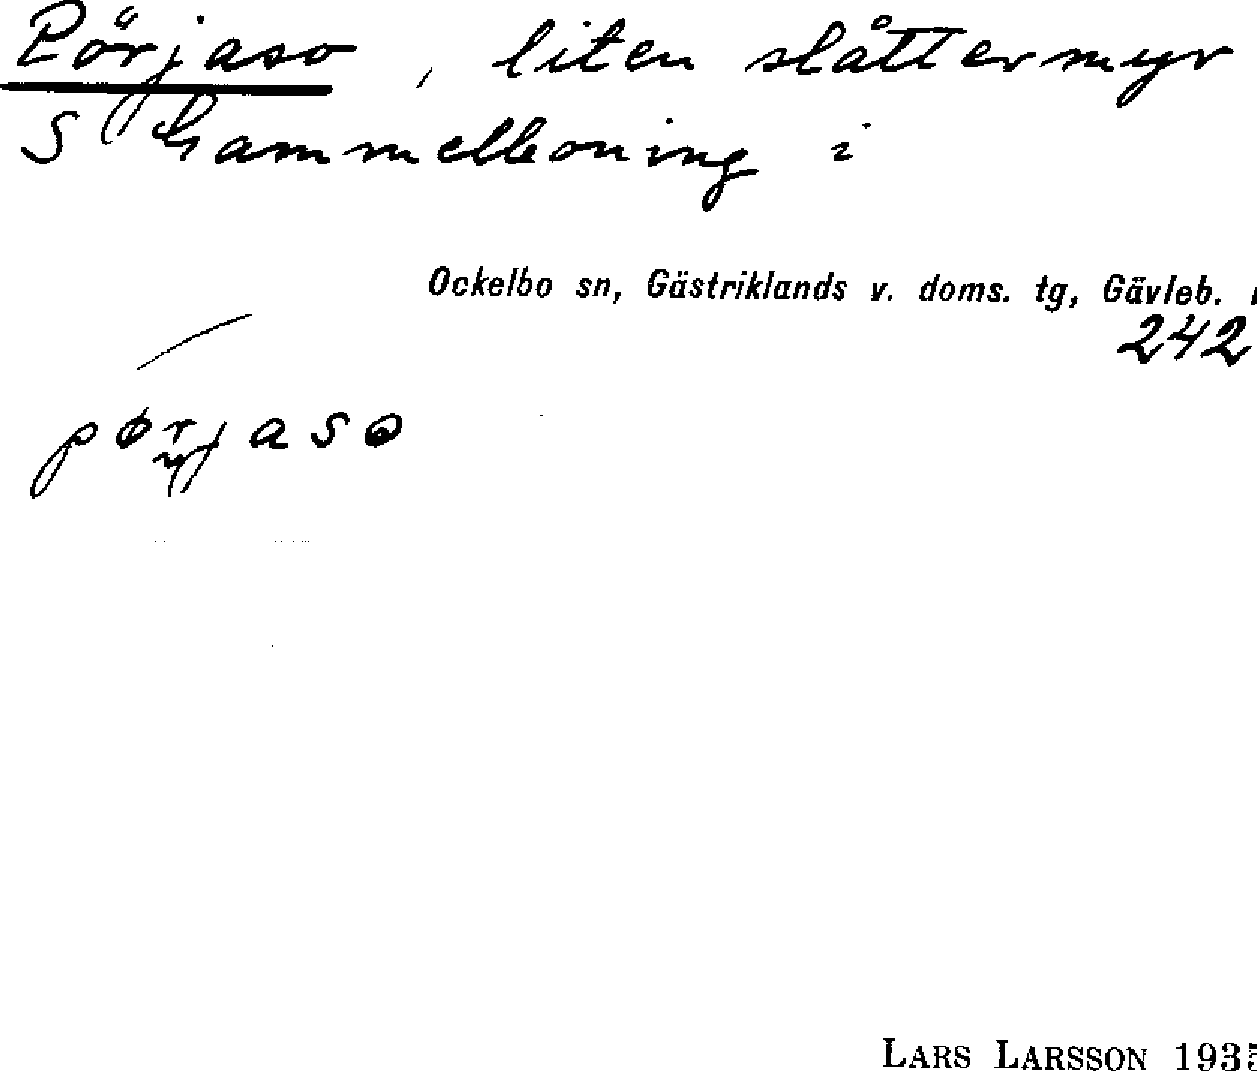 Pörjaso , liten slåttermyr
S Hammelboning i
Ockelbo sn, Gästriklands v. doms. tg, Gävleb.
242
pørjaso
LARS LARSSON 1935